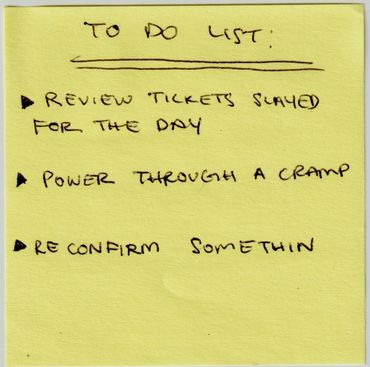 TO DO LIST:
▶ REVIEW TICKETS SLAYED
FOR THE DAY
▶ POWER THROUGH A CRAMP
▶ RECONFIRM SOMETHIN